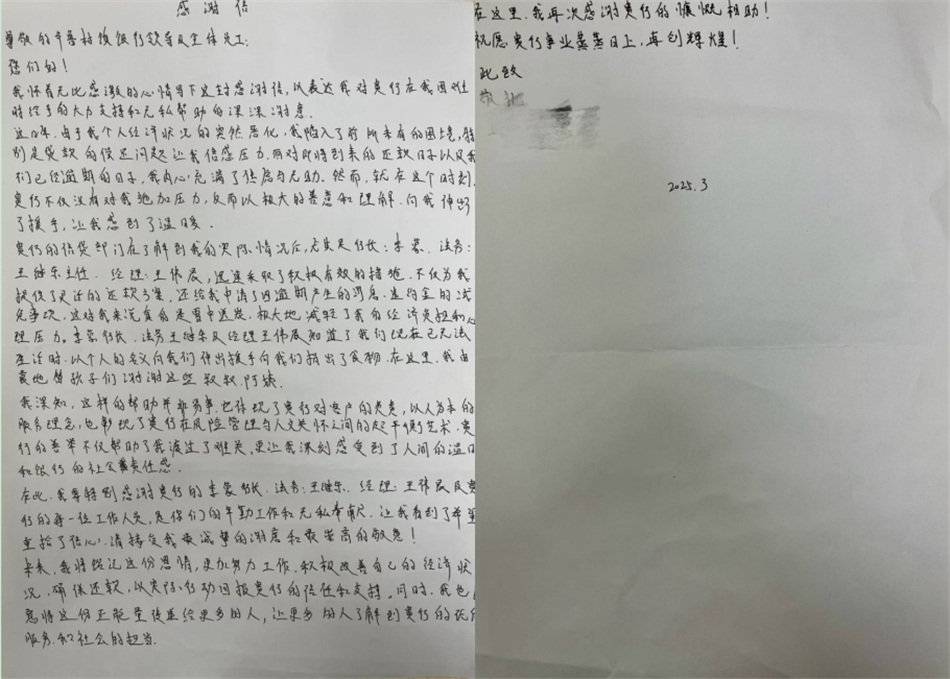 感谢信
尊敬的平番村镇银行领导及全体员工:
您们好!
我怀着无比感激的心情写下这封感谢信,以表达我对贵行在我困难
时给予的大力支持和无私帮助的深深谢意.
这几年.由于我个人经济状况的突然恶化,我陷入了前所未有的困境,特
别是贷款的偿还问题让我倍感压力.面对即将到来的还款日子以及我
们已经逾期的日子,我内心充满了焦虑与无助.然而,就在这个时刻,
贵行不仅没有对我施加压力,反而以极大的善意和理解.向我伸出
了援手,让我感到了温暖.
贵行的信贷部门在了解到我的实际情况后,尤其是行长:李蒙.法务:
王继乐主任.经理:王伟晨,迅速采取了积极有效的措施.不仅为我
提供了灵活的还款方案,还给我申请了因逾期产生的罚息.违约金的减
免事项,这对我来说真可是雪中送炭,极大地减轻了我自经济负担和心
理压力。李蒙行长.法务王继乐及经理王伟晨知道了我们现在已无法
生活时.以个人的名义向我们伸出援手向我们捐出了食物.在这里.我由
衷地替孩子们谢谢这些叔叔.阿姨.
我深知,这样的帮助并非易事.它体现了贵行对客户的负责,以人为本的
服务理念,也彰现了贵行在风险管理与人文关怀之间的起平衡艺术.贵
行的善举不仅帮助了我渡过了难关,更让我深刻感受到了人间的温日
和银行的社会责任感.
在此.我要特别感谢贵行的李蒙行长.法务:王继乐.经理:王伟晨及贵
行的每一位工作人员,是你们的辛勤工作和无私奉献.让我看到了希望
重拾了信心.请接受我最诚挚的谢意和最崇高的敬意!
未来,我将铭记这份恩情,更加努力工作.积极改善自己的经济状
况.确保还款,以实际行动回报贵行的信任和支持。同时.我也
愿将这份正能量传递给更多的人,让更多的人了解到贵行的优
服务.和社会的担当.
在这里.我再次感谢贵行的慷慨相助!
祝愿贵行事业蒸蒸日上,再创辉煌!
此致
敬礼
2025.3